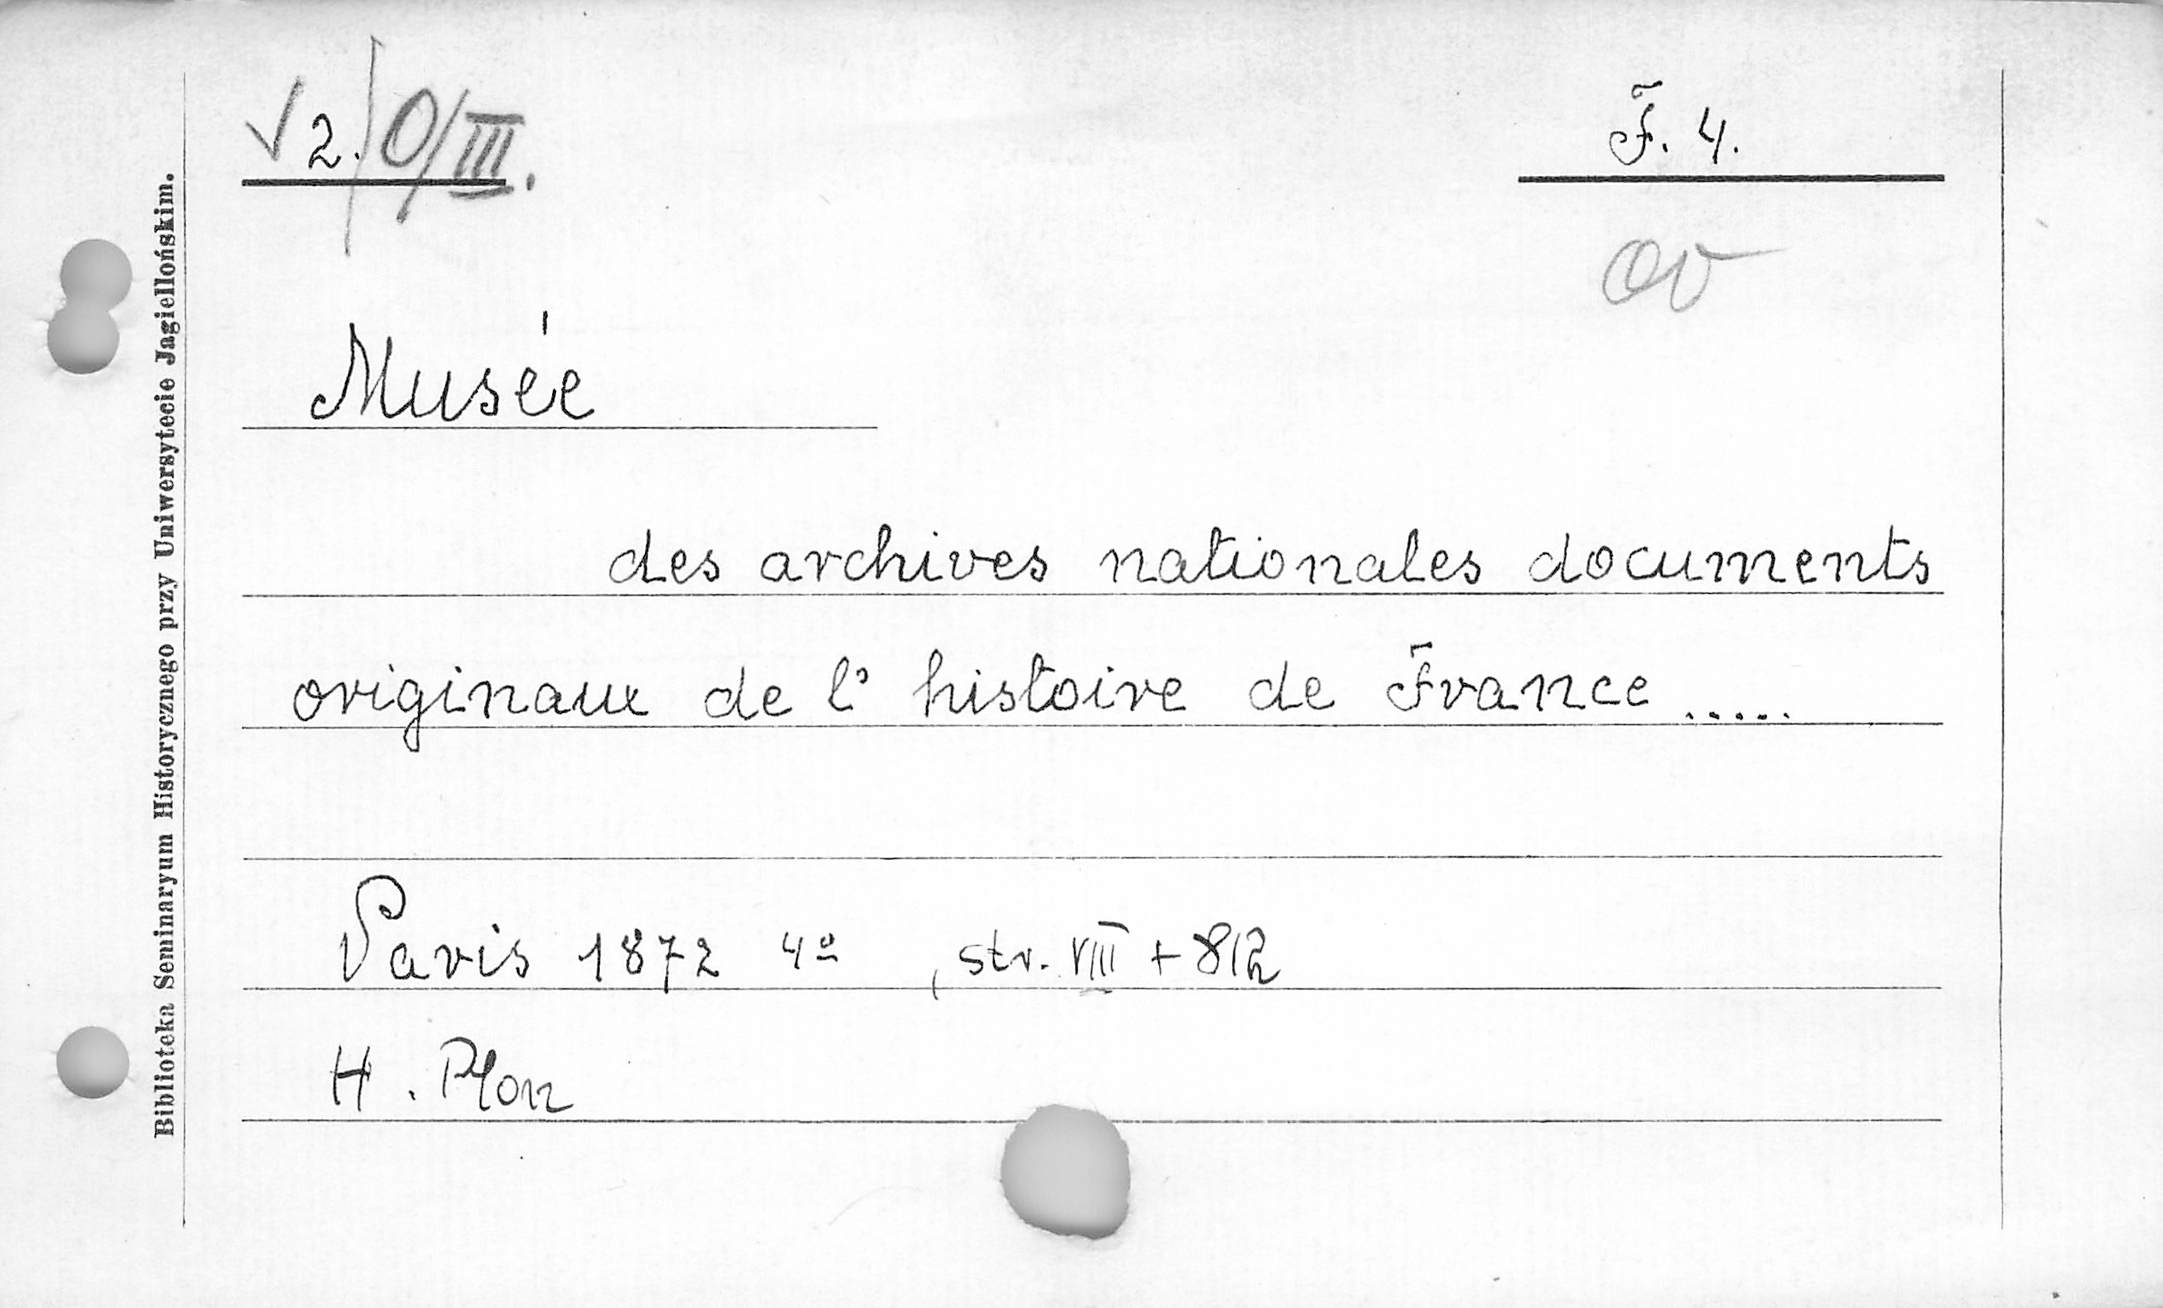 √ 2. / O/III.
F. 4.
ov
Musée
des archives nationales documents
originaux de l' histoire de France .....
Paris 1872 4º , str. VIII + 812
H. Plon
Biblioteka Seminaryum Historycznego przy Uniwersytecie Jagiellońskim.